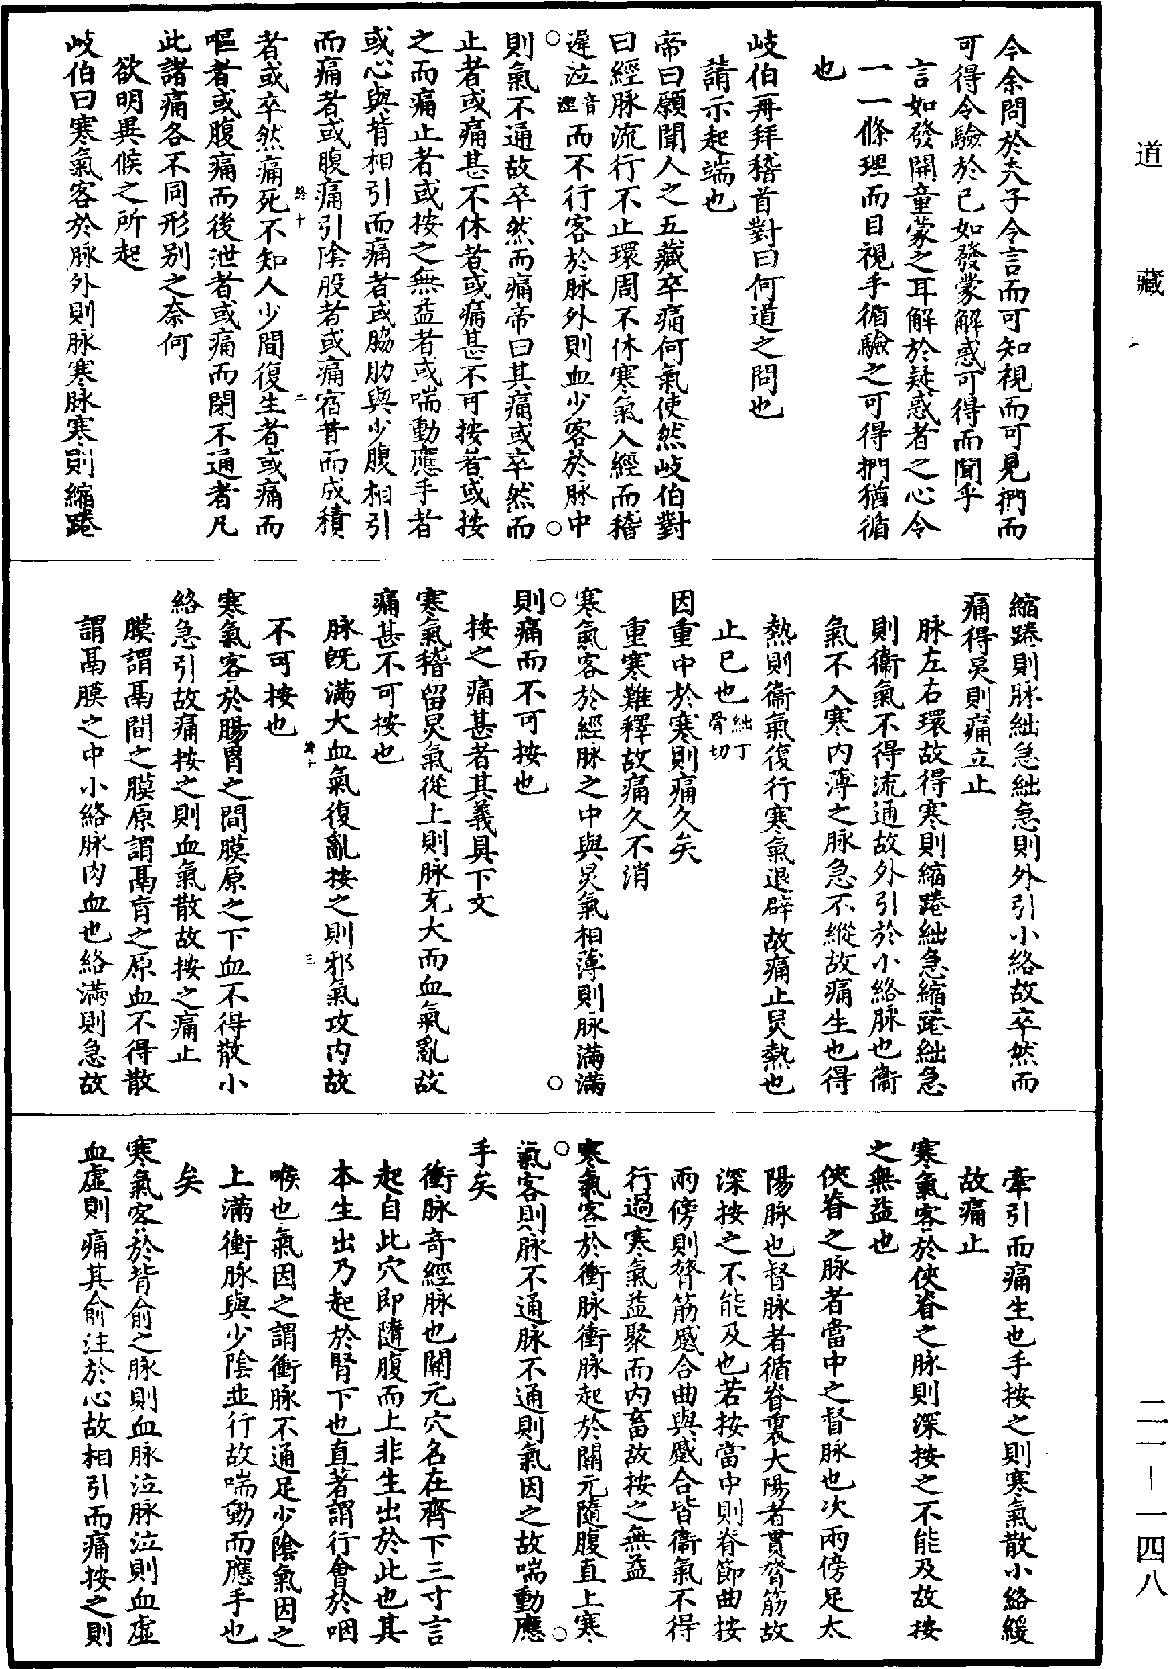 今余問於夫子令言而可知視而可見捫而
可得令驗於已如發蒙解惑可得而聞乎
言如發開童蒙之耳解於疑惑者之心令
一一條理而目視手循驗之可得捫猶循
也
岐伯再拜稽首對曰何道之問也
請示起端也
帝曰願聞人之五藏卒痛何氣使然岐伯對
曰經脉流行不止環周不休寒氣入經而稽
遲泣音澀而不行客於脉外則血少客於脉中
則氣不通故卒然而痛帝曰其痛或卒然而
止者或痛甚不休者或痛甚不可按者或按
之而痛止者或按之無益者或喘動應手者
或心與背相引而痛者或脇肋與少腹相引
而痛者或腹痛引陰股者或痛宿昔而成積
者或卒然痛死不知人少間復生者或痛而
嘔者或腹痛而後泄者或痛而閉不通者凡
此諸痛各不同形别之奈何
欲明異候之所起
岐伯曰寒氣客於脉外則脉寒脉寒則縮踡
縮踡則脉絀急絀急則外引小絡故卒然而
痛得炅則痛立止
脉左右環故得寒則縮踡絀急縮踡絀急
則衞氣不得流通故外引於小絡脉也衞
氣不入寒内薄之脉急不縱故痛生也得
熱則衞氣復行寒氣退辟故痛止炅熱也
止已也絀丁骨切
因重中於寒則痛久矣
重寒難釋故痛久不消
寒氣客於經脉之中與炅氣相薄則脉滿滿
則痛而不可按也
按之痛甚者其義具下文
寒氣稽留炅氣從上則脉充大而血氣亂故
痛甚不可按也
脉旣滿大血氣復亂按之則邪氣攻内故
不可按也
寒氣客於腸胃之間膜原之下血不得散小
絡急引故痛按之則血氣散故按之痛止
膜謂鬲間之膜原謂鬲肓之原血不得散
謂鬲膜之中小絡脉内血也絡滿則急故
牽引而痛生也手按之則寒氣散小絡緩
故痛止
寒氣客於俠脊之脉則深按之不能及故按
之無益也
俠脊之脉者當中之督脉也次兩傍足太
陽脉也督脉者循脊裏大陽者貫膂筋故
深按之不能及也若按當中則脊節曲按
兩傍則膂筋感合曲與感合皆衞氣不得
行過寒氣益聚而内畜故按之無益
寒氣客於衝脉衝脉起於關元隨腹直上寒
氣客則脉不通脉不通則氣因之故喘動應
手矣
衝脉奇經脉也關元穴名在齊下三寸言
起自此穴即隨腹而上非生出於此也其
本生出乃起於腎下也直著謂行會於咽
喉也氣因之謂衝脉不通足少陰氣因之
上滿衝脉與少陰並行故喘動而應手也
矣
寒氣客於背俞之脉則血脉泣脉泣則血虛
血虛則痛其俞注於心故相引而痛按之則
道藏
二一—一四八